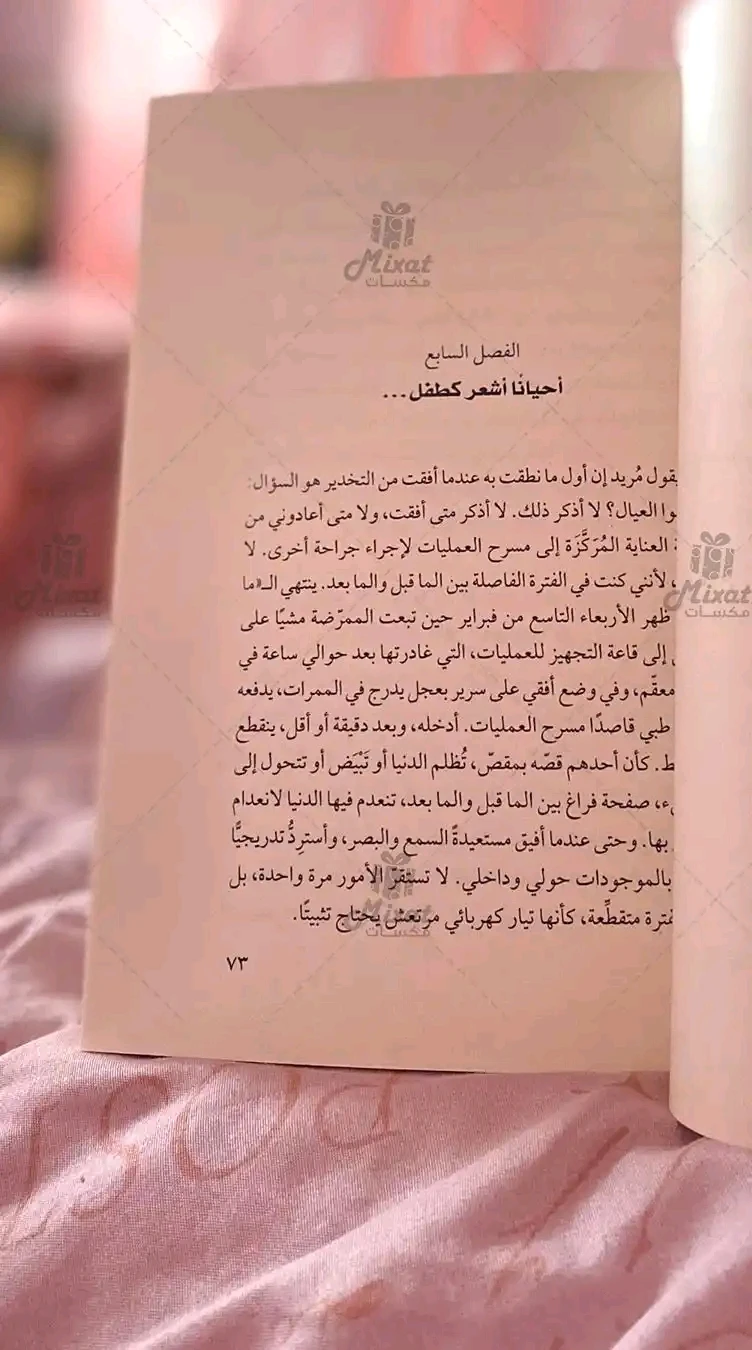 Mixat
مكسات
الفصل السابع
أحيانًا أشعر كطفل...
يقول مُريد إن أول ما نطقت به عندما أفقت من التخدير هو السؤال:
العيال؟ لا أذكر ذلك. لا أذكر متى أفقت، ولا متى أعادوني من
العناية المُرَكَّزَة إلى مسرح العمليات لإجراء جراحة أخرى. لا
، لأنني كنت في الفترة الفاصلة بين الما قبل والما بعد. ينتهي الـ«ما
ظهر الأربعاء التاسع من فبراير حين تبعت الممرّضة مشيًا على
إلى قاعة التجهيز للعمليات، التي غادرتها بعد حوالي ساعة في
معقّم، وفي وضع أفقي على سرير بعجل يدرج في الممرات، يدفعه
طبي قاصدًا مسرح العمليات. أدخله، وبعد دقيقة أو أقل، ينقطع
كأن أحدهم قصّه بمقصّ، تُظلم الدنيا أو تَبْيَض أو تتحول إلى
، صفحة فراغ بين الما قبل والما بعد، تنعدم فيها الدنيا لانعدام
بها. وحتى عندما أفيق مستعيدةً السمع والبصر، وأستردُّ تدريجيًّا
بالموجودات حولي وداخلي. لا تستقرّ الأمور مرة واحدة، بل
متقطِّعة، كأنها تيار كهربائي مرتعش يحتاج تثبيتًا.
٧٣
Mixat
مكسات
Mixat
مكسات
Mixat
مكسات